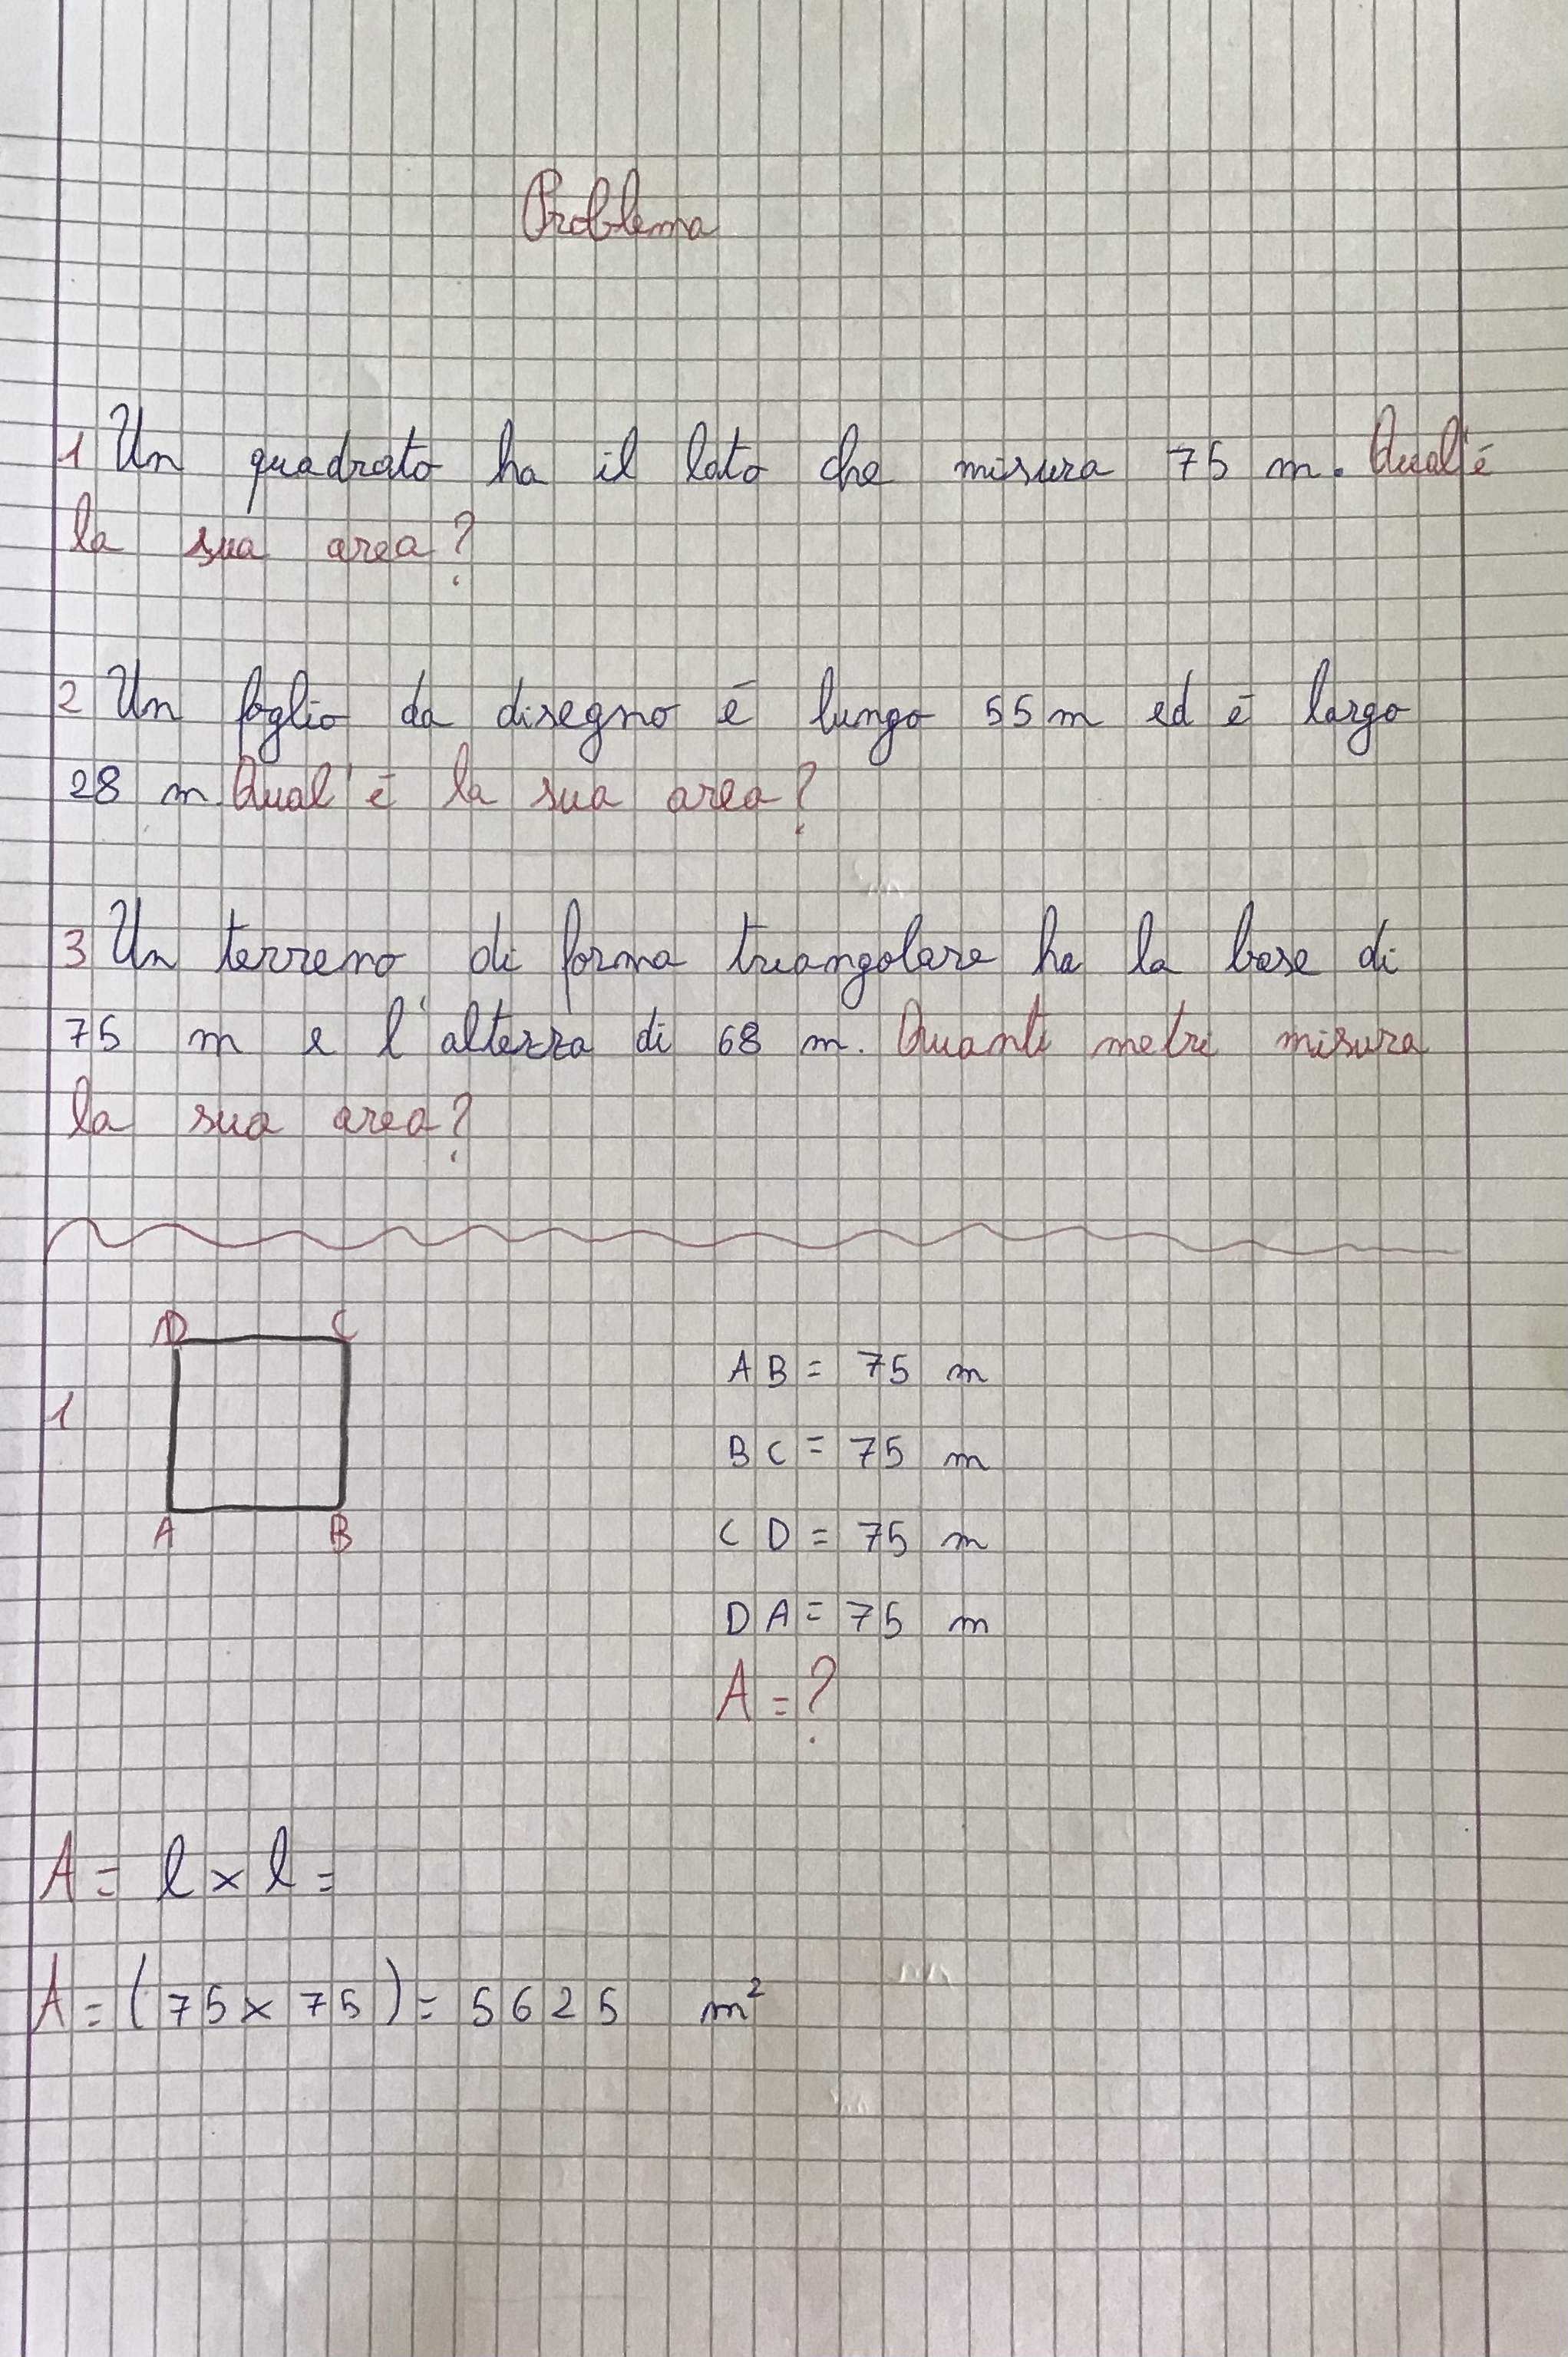 Problema
1 Un quadrato ha il lato che misura 75 m. Qual'è
la sua area?
2 Un foglio da disegno é lungo 55 m ed é largo
28 m. Qual'é la sua area?
3 Un terreno di forma triangolare ha la base di
75 m e l'altezza di 68 m. Quanti metri misura
la sua area?
D C
1
A B
AB = 75 m
BC = 75 m
CD = 75 m
DA = 75 m
A = ?
A = l × l =
A = (75 × 75) = 5625 m²